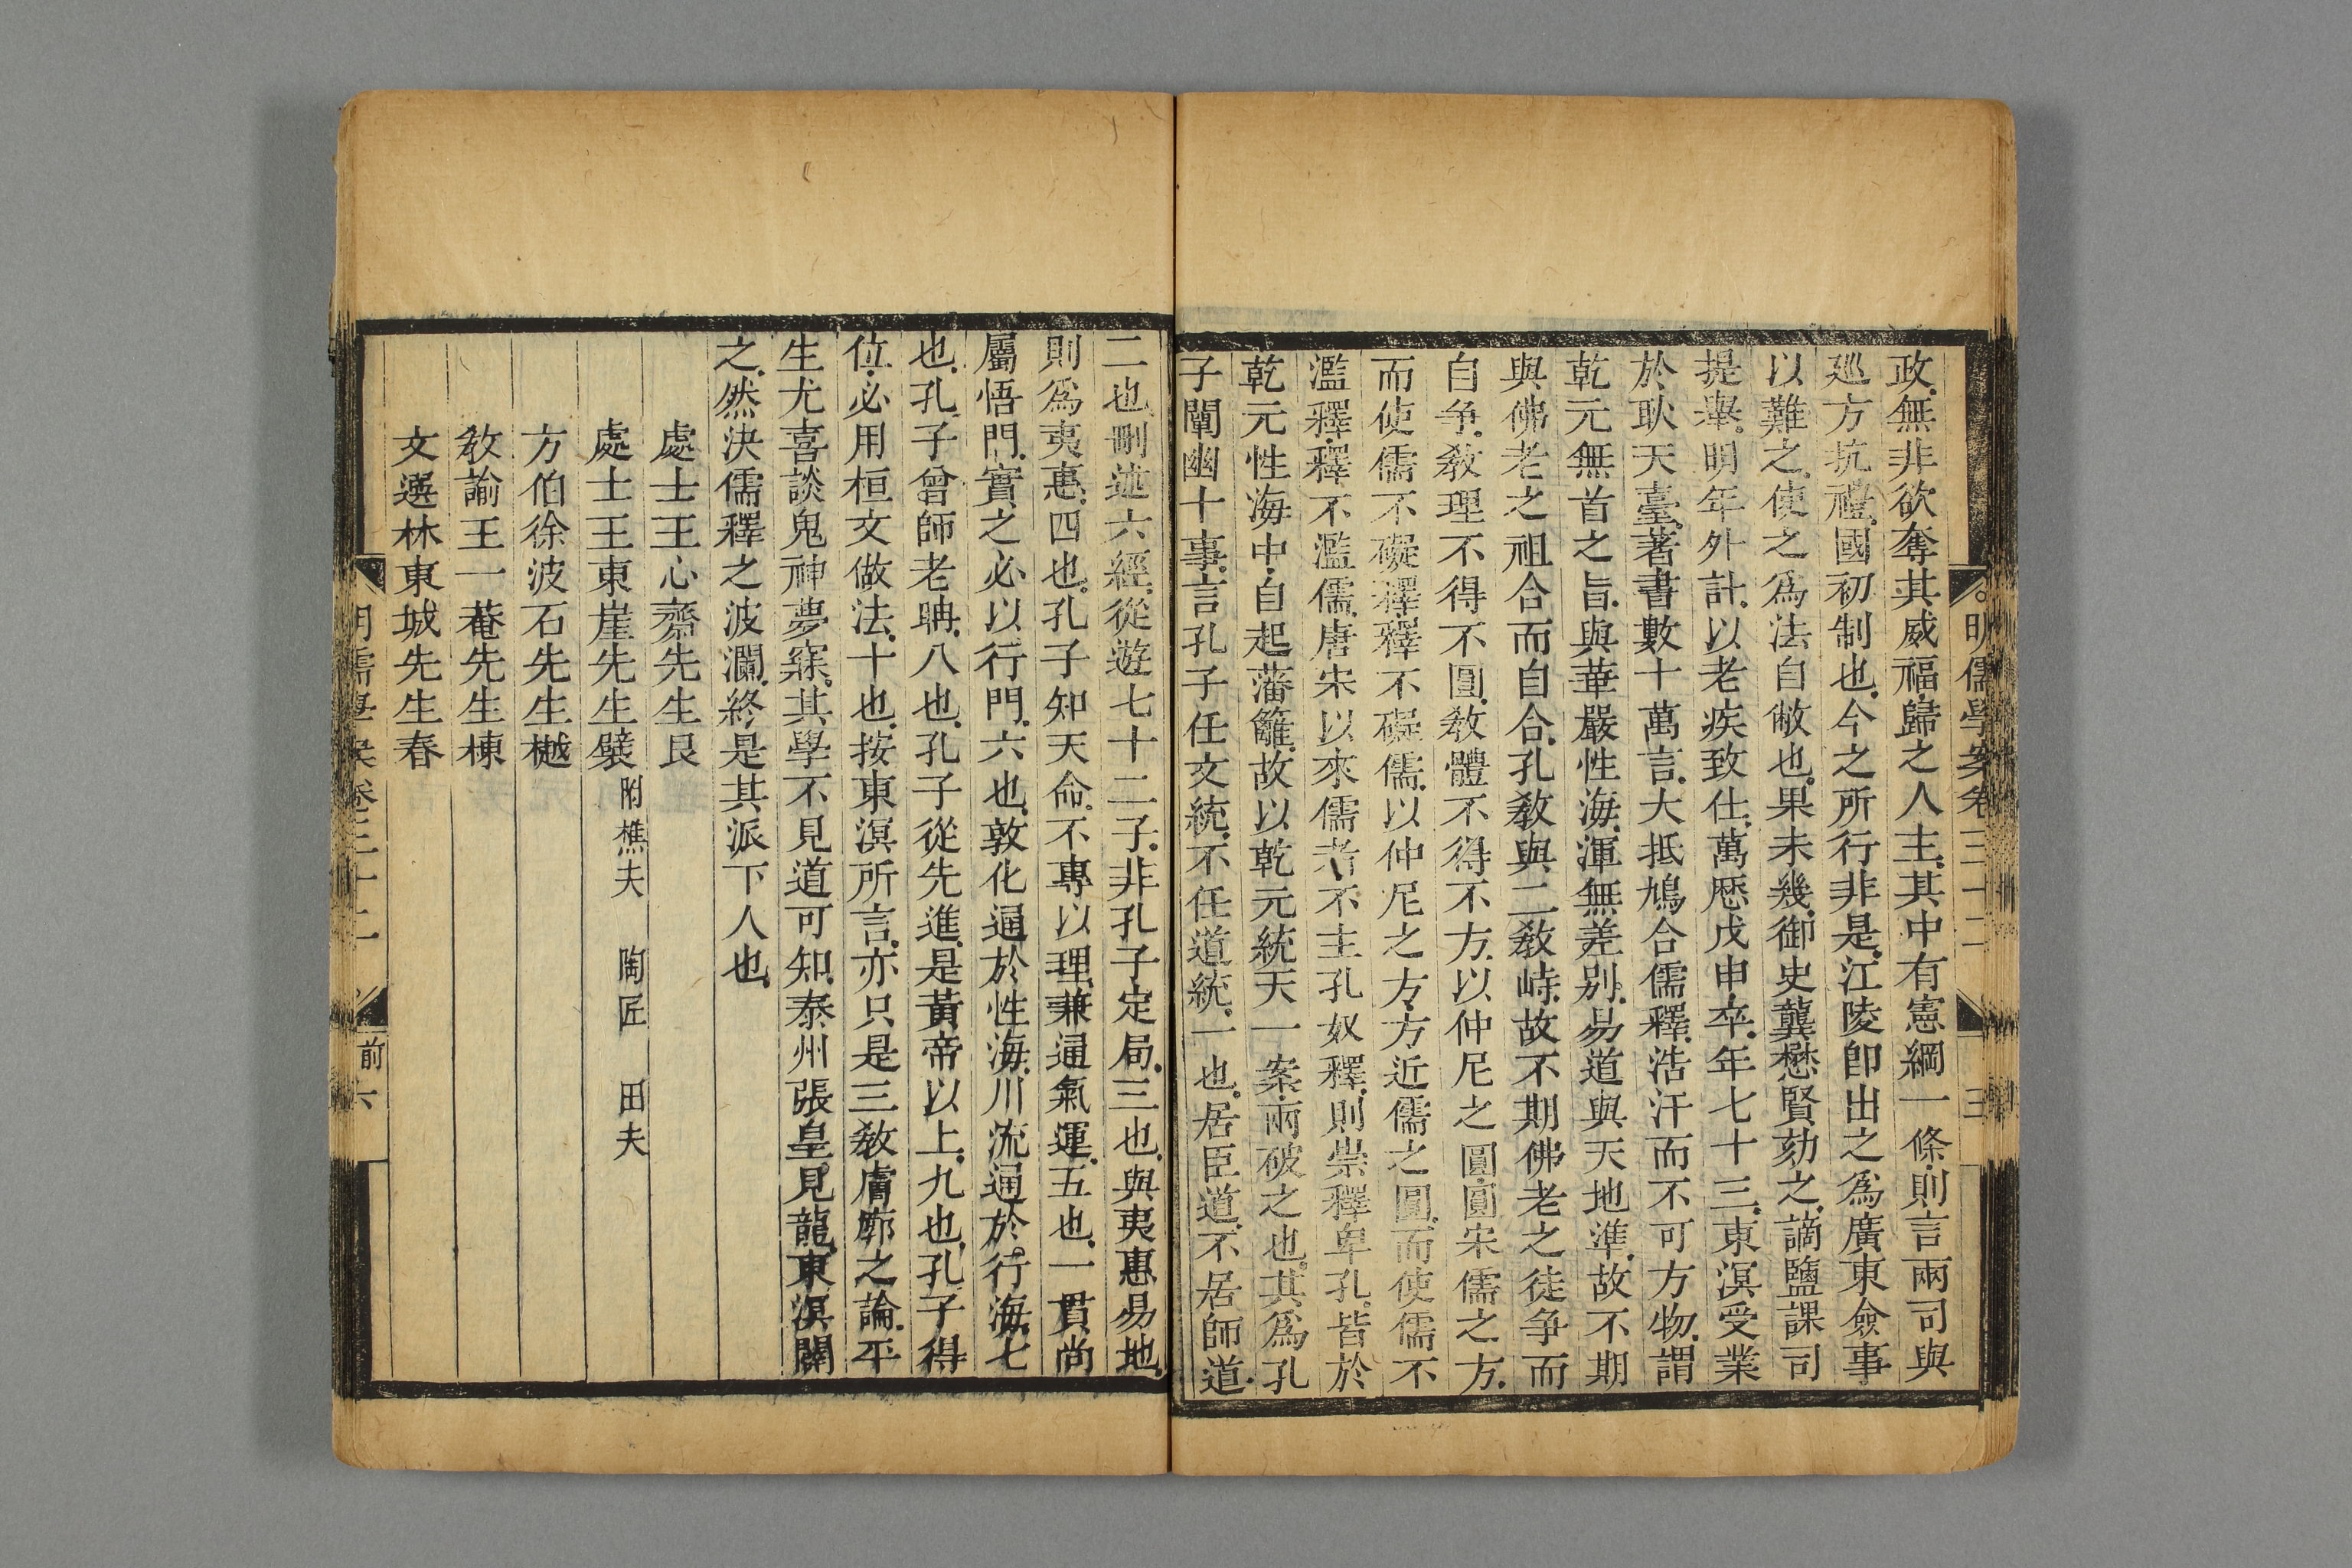 明儒學案卷三十二
三
政無非欲奪其威福歸之人主其中有憲綱一條則言兩司與
廵方抗禮國初制也今之所行非是江陵卽出之爲廣東僉事
以難之使之爲法自敝也果未幾御史龔懋賢劾之謫鹽課司
提舉明年外計以老疾致仕萬厯戊申卒年七十三東溟受業
於耿天臺著書數十萬言大抵鳩合儒釋浩汗而不可方物謂
乾元無首之旨與華嚴性海渾無差别易道與天地準故不期
與佛老之祖合而自合孔敎與二敎峙故不期佛老之徒争而
自争敎理不得不圓敎體不得不方以仲尼之圓圓宋儒之方
而使儒不礙釋釋不礙儒以仲尼之方方近儒之圓而使儒不
濫釋釋不濫儒唐宋以來儒者不主孔奴釋則崇釋卑孔皆於
乾元性海中自起藩籬故以乾元統天一案兩破之也其爲孔
子闡幽十事言孔子任文統不任道統一也居臣道不居師道
二也刪述六經從遊七十二子非孔子定局三也與夷惠易地
則爲夷惠四也孔子知天命不專以理兼通氣運五也一貫尚
屬悟門實之必以行門六也敦化通於性海川流通於行海七
也孔子曾師老聃八也孔子從先進是黃帝以上九也孔子得
位必用桓文做法十也按東溟所言亦只是三敎膚廓之論平
生尤喜談鬼神夢寐其學不見道可知泰州張皇見龍東溟闢
之然決儒釋之波瀾終是其派下人也
處士王心齋先生艮
處士王東崖先生襞 附樵夫 陶匠 田夫
方伯徐波石先生樾
敎諭王一菴先生棟
文選林東城先生春
明儒學案卷三十二
前六